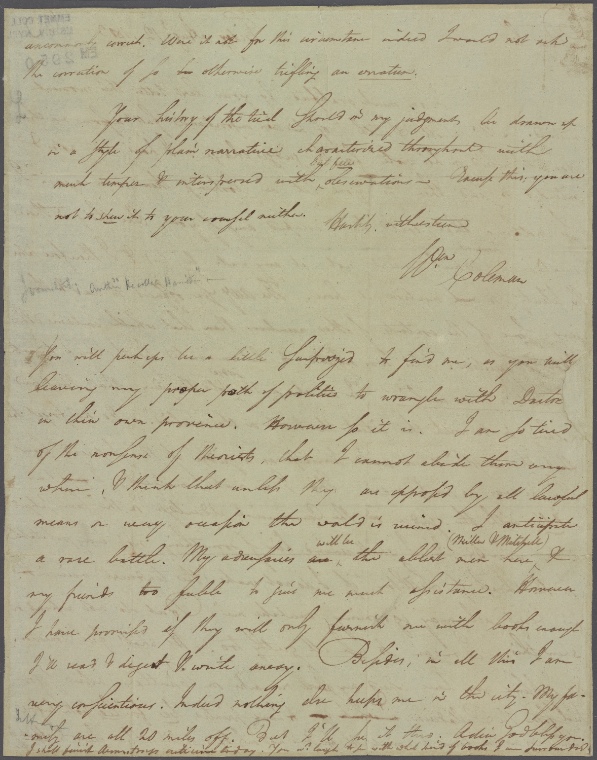 correct. Were it not for this circumstance indeed I would not ask
the correction of so otherwise trifling an erratum.
Your history of the trial should in my judgment be drawn up
in a style of plain narrative charactorized throughout with
but few
much temper & interspersed with observations— Except this, you are
not to shew it to your counsel neither.
Hastily, with esteem
Wm Coleman
You will perhaps be a little surprized to find me, as you will
leaving my proper path of politics to wrangle with Doctors
in their own province. However so it is. I am so tired
of the nonsense of theorists, that I cannot abide them any
where, & think that unless they are opposed by all lawful
means on every occasion the world is ruined. I anticipate
will be (Miller & Mitchell)
a rare battle. My adversaries are the ablest men here, &
my friends too feeble to give me much assistance. However
I have promised if they will only furnish me with books enough
I'll read & digest & write away. Besides, in all this I am
very conscientious. Indeed nothing else keeps me in the city. My fa-
-mily are all 20 miles off. But I'll be it thus. Adieu God bless you.
I shall finish today. You will laugh with kind of books I surrounded